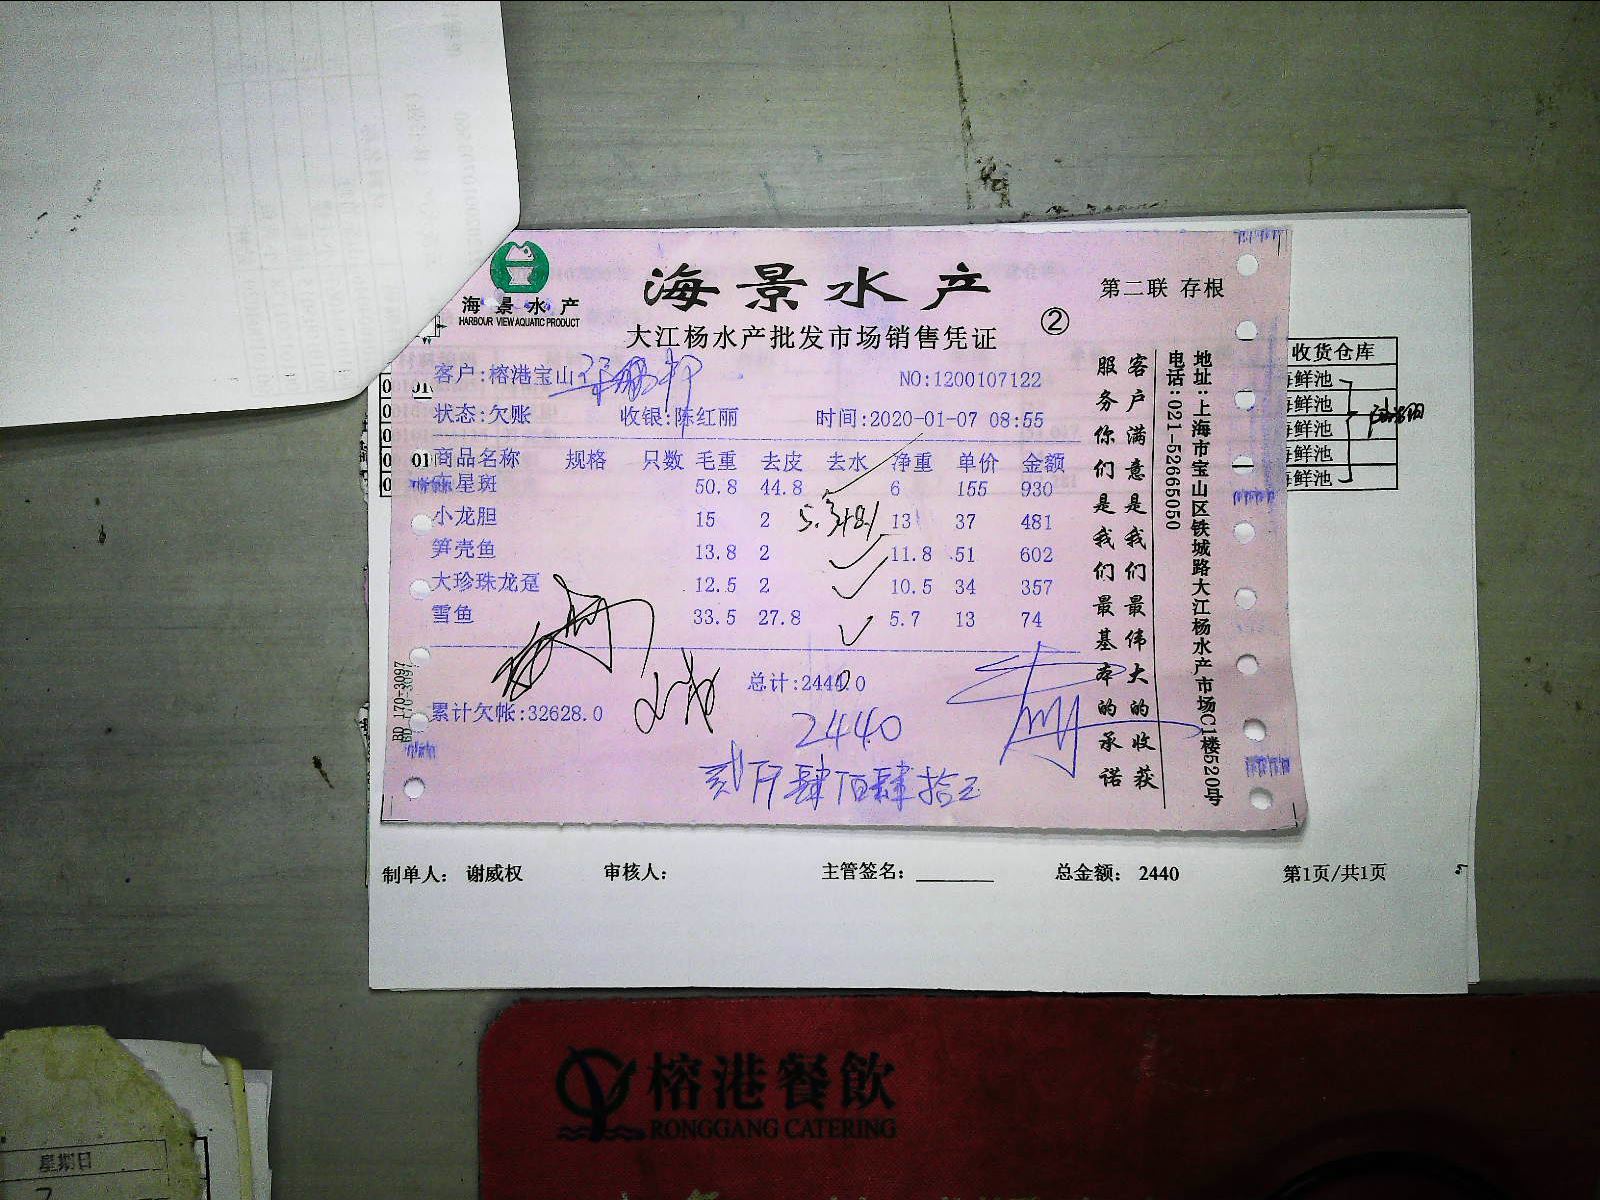 海景水产
HARBOUR VIEW AQUATIC PRODUCT
海景水产
大江杨水产批发市场销售凭证
②
第二联 存根
客户:榕港宝山
NO:1200107122
状态:欠账 收银:陈红丽 时间:2020-01-07 08:55
商品名称 规格 只数 毛重 去皮 去水 净重 单价 金额
东星斑 50.8 44.8 6 155 930
小龙胆 15 2 13 37 481
笋壳鱼 13.8 2 11.8 51 602
大珍珠龙趸 12.5 2 10.5 34 357
雪鱼 33.5 27.8 5.7 13 74
总计:2440.0
累计欠帐:32628.0
2440
贰仟肆佰肆拾元
BD 170-3097
客户满意是我们最伟大的收获
服务你们是我们最基本的承诺
地址:上海市宝山区铁城路大江杨水产市场C1楼520号
电话:021-52665050
收货仓库
海鲜池
海鲜池
海鲜池
海鲜池
海鲜池
制单人: 谢威权 审核人: 主管签名: 总金额: 2440 第1页/共1页
榕港餐飲
RONGGANG CATERING
星期日